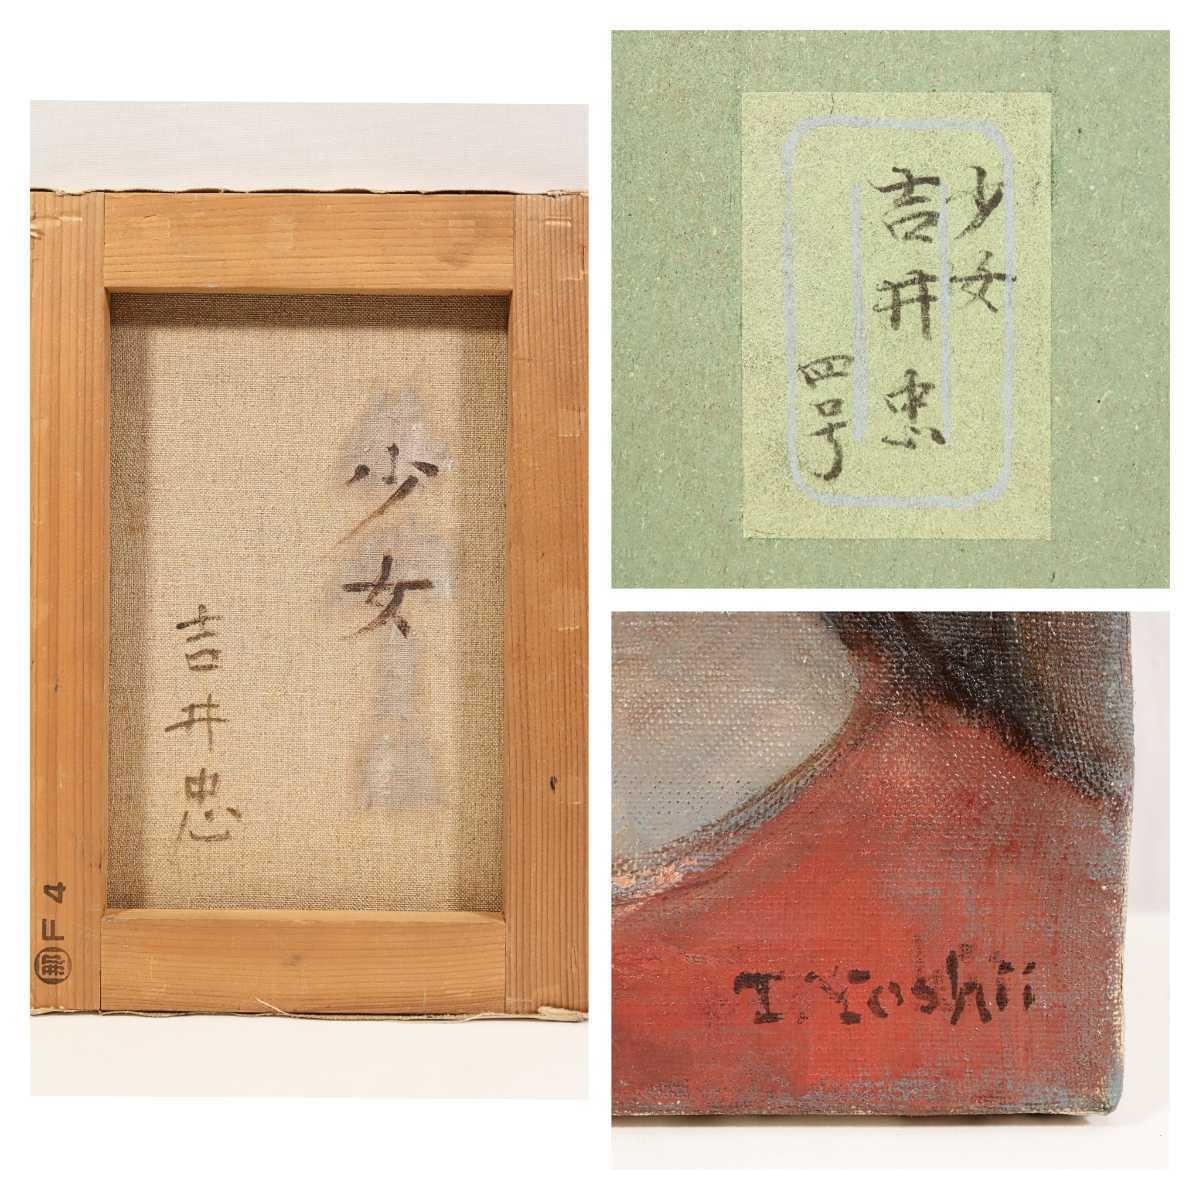 少女
吉井忠
F4
那
少女
吉井忠
四号
T. Yoshii